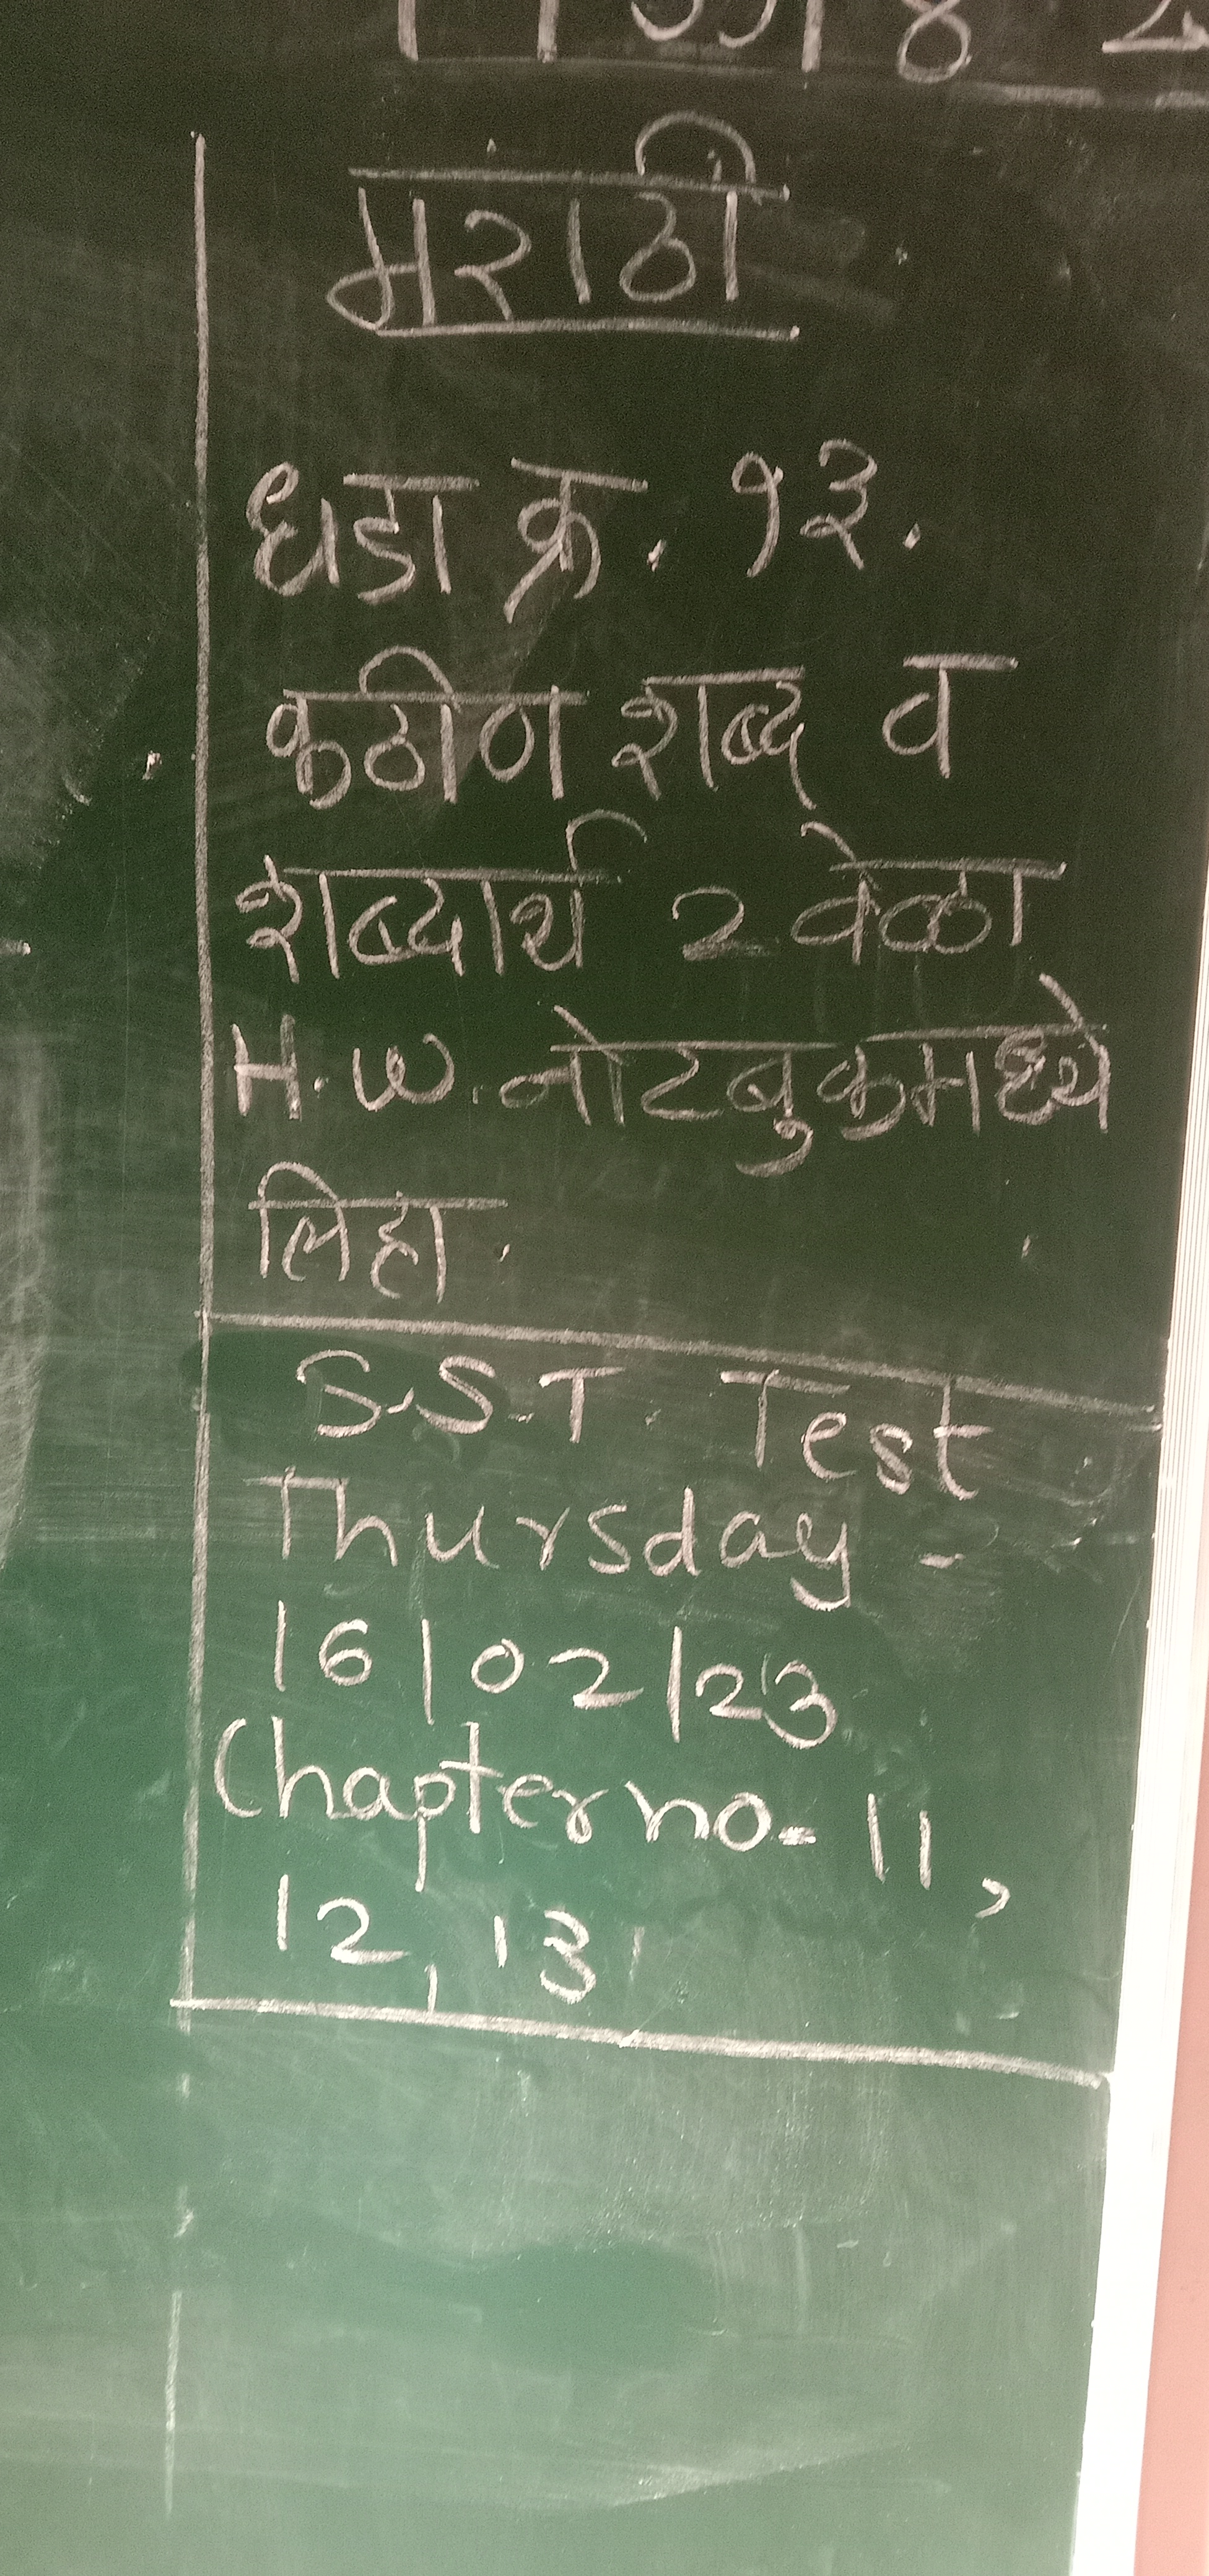 मराठी
धडा क्र. १३.
कठीण शब्द व
शब्दार्थ 2 वेळा
H.W. नोटबुकमध्ये
लिहा.
S.S.T. Test
Thursday -
16/02/23
Chapter no- 11,
12, 13